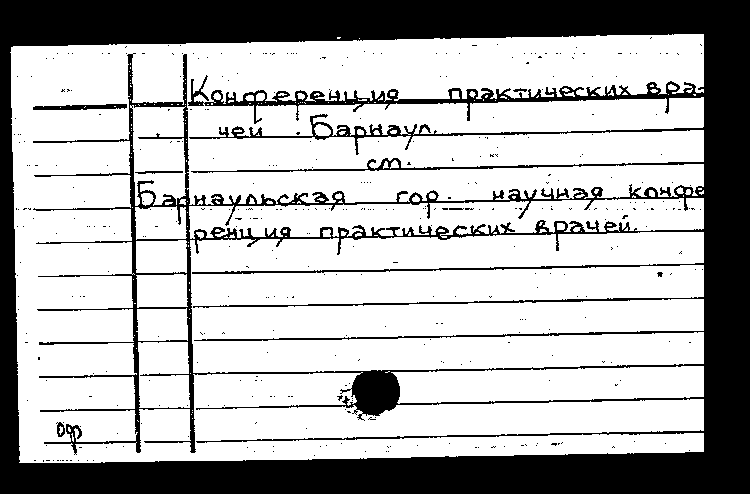 Конференция практических вра-
чей. Барнаул.
см.
Барнаульская гор. научная конфе
ренция практических врачей.